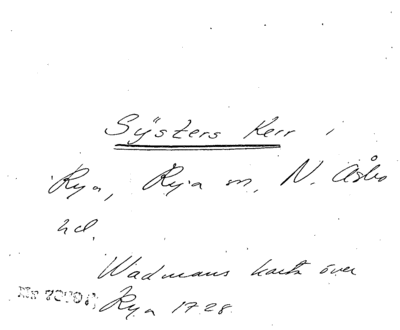 Sÿsters Kerr i
Rya, Rya sn, N. Åsbo
hd.
Wadmans karta över
Rya 1728